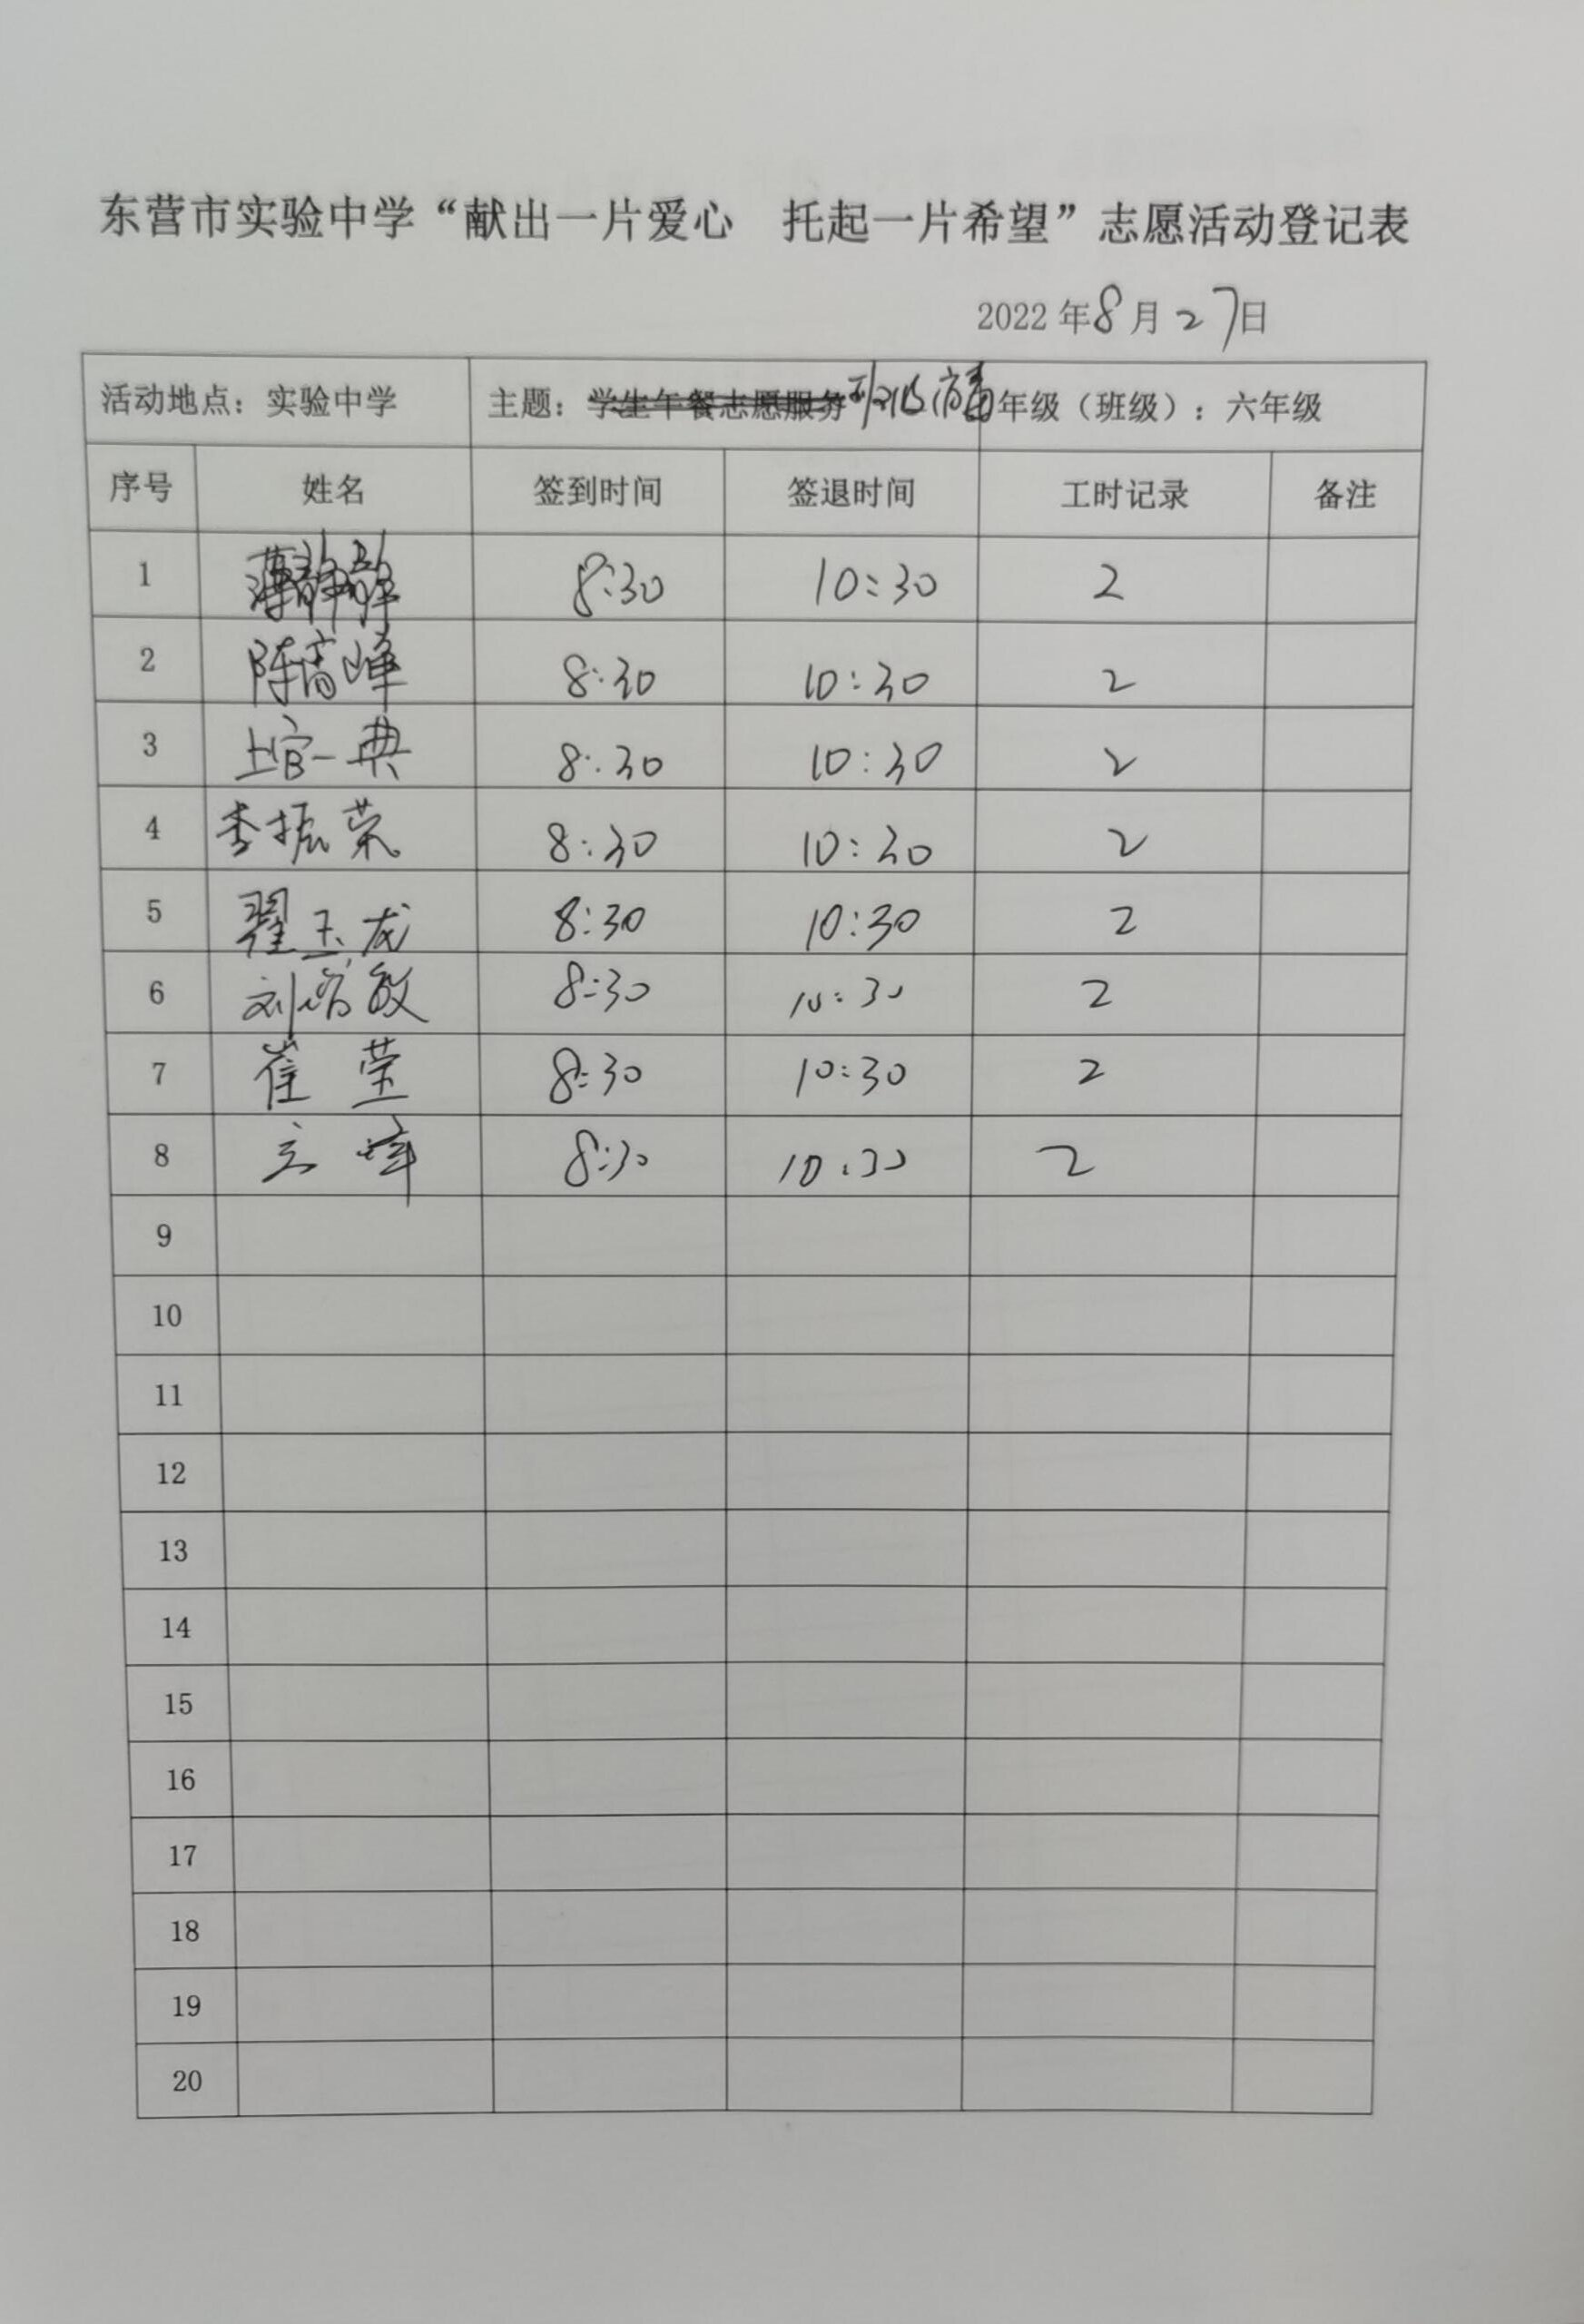 东营市实验中学“献出一片爱心 托起一片希望”志愿活动登记表
2022年8月27日
活动地点：实验中学 主题：学生午餐志愿服务 年级（班级）：六年级
序号 姓名 签到时间 签退时间 工时记录 备注
1 薄静静 8:30 10:30 2
2 陈高峰 8:30 10:30 2
3 上官一典 8:30 10:30 2
4 李振荣 8:30 10:30 2
5 翟玉龙 8:30 10:30 2
6 刘 敏 8:30 10:30 2
7 崔莹 8:30 10:30 2
8 8:30 10:30 2
9
10
11
12
13
14
15
16
17
18
19
20